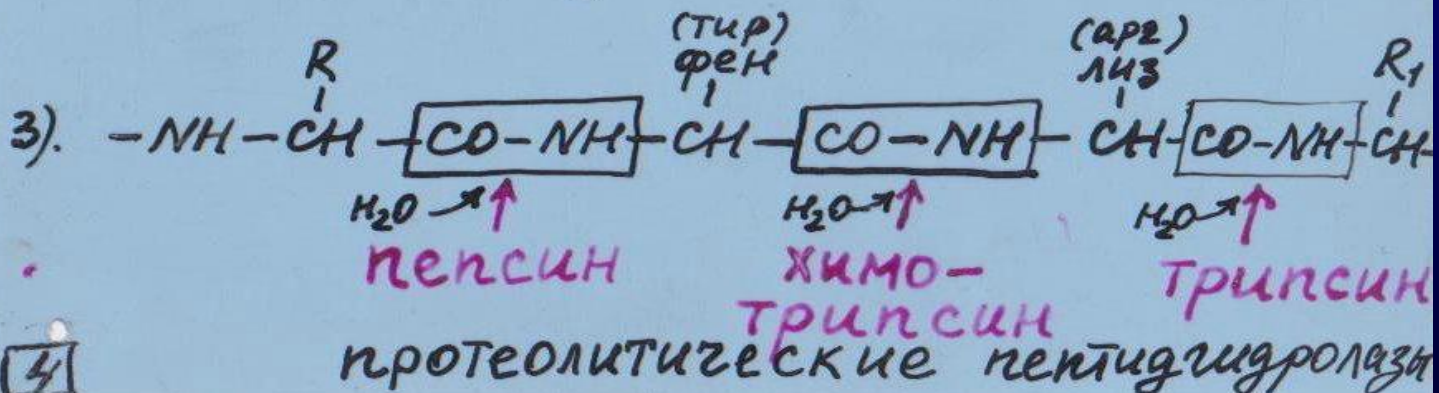 (тир) (арг)
R фен лиз R₁
3). -NH-CH-CO-NH-CH-CO-NH-CH-CO-NH-CH-
H₂O H₂O H₂O
пепсин химо- трипсин
трипсин
4 протеолитические пептидгидролазы